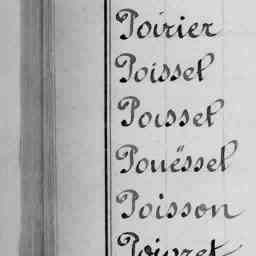 Poirier
Poissel
Poissel
Pouëssel
Poisson